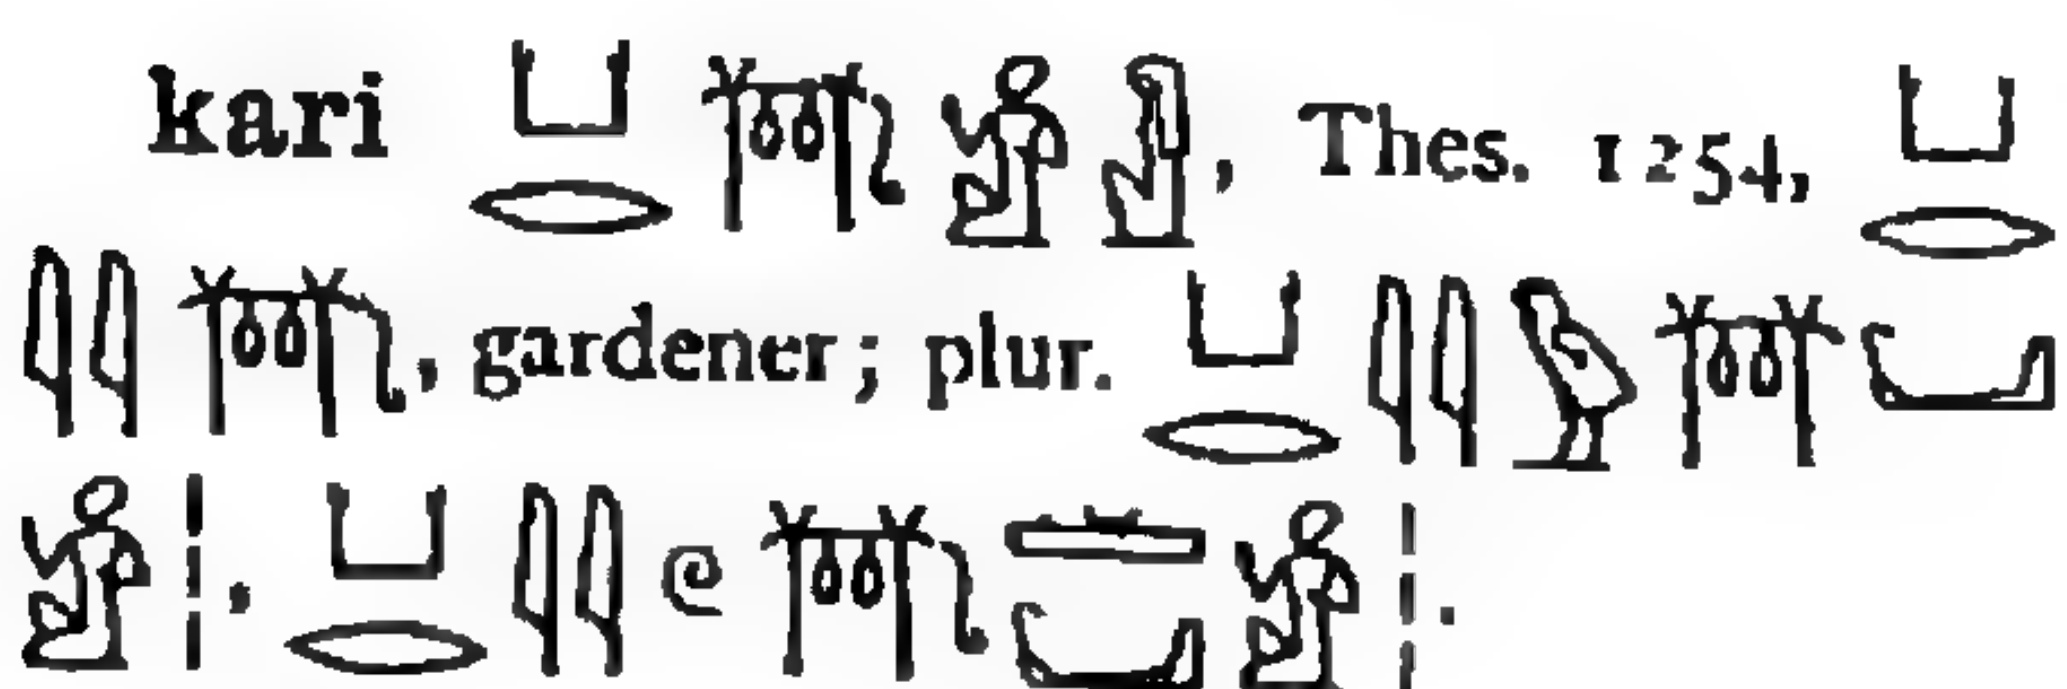 kari 𓂓𓂋𓇭𓀀, Thes. 1254, 𓂓𓂋
𓇋𓇋𓇭, gardener; plur. 𓂓𓂋𓇋𓇋𓅱𓇭
𓀀𓏥, 𓂓𓂋𓇋𓇋𓏲𓇭𓀀𓏥.